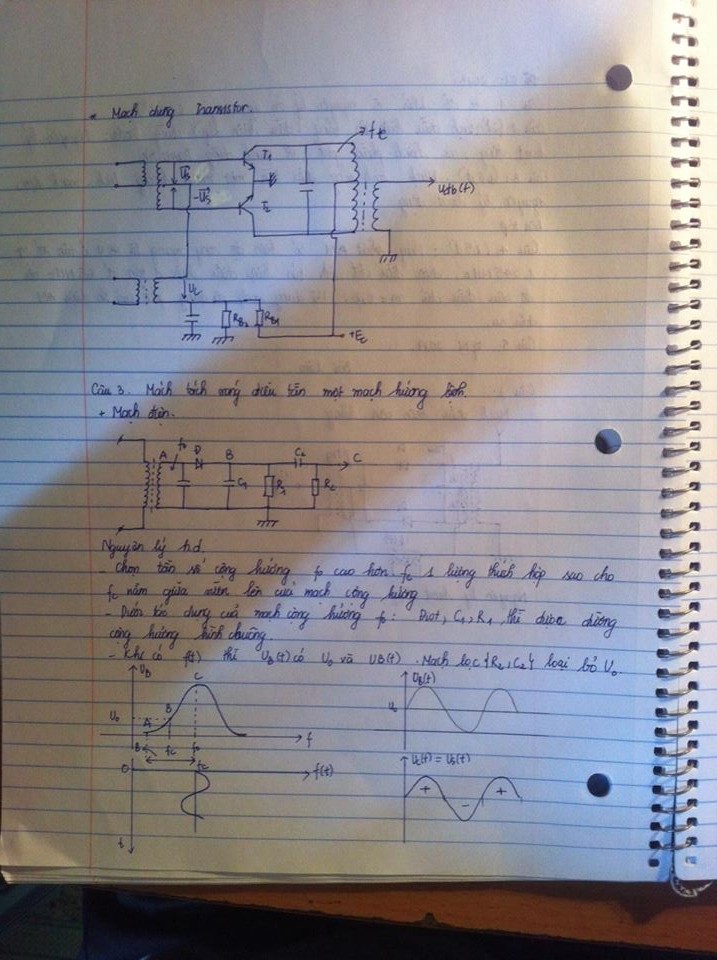 * Mạch dùng Transistor.
T1
ftc
Us
-Us
T2
Utb(t)
UL
RB2
RB1
+Ec
Câu 3. Mạch tách sóng điều tần một mạch hưởng lệch.
+ Mạch điện.
A fo D B C2 C
C1 R1 R2
Nguyên lý h.đ
- Chọn tần số cộng hưởng fo cao hơn fc 1 lượng thích hợp sao cho
fc nằm giữa sườn lên của mạch cộng hưởng
- Dưới tác dụng của mạch cộng hưởng fo: Diot, C1, R1, thì được đường
cộng hưởng hình chuông.
- Khi có f(t) thì UB(t) có Uo và UB(t). Mạch lọc {R2, C2} loại bỏ Uo.
UB
C
Uo
B
A
fc fo f
B
UB(t)
Uo
O fc f(t)
t
Uc(t) = Us(t)
+ - +